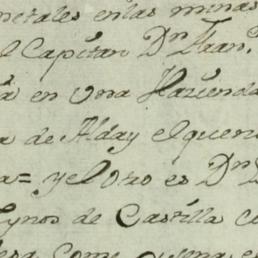 metales en las minas
el Capitan Dn Fran
en una Hazienda
de Alday el que
y el otro es Dn
de Castilla
como